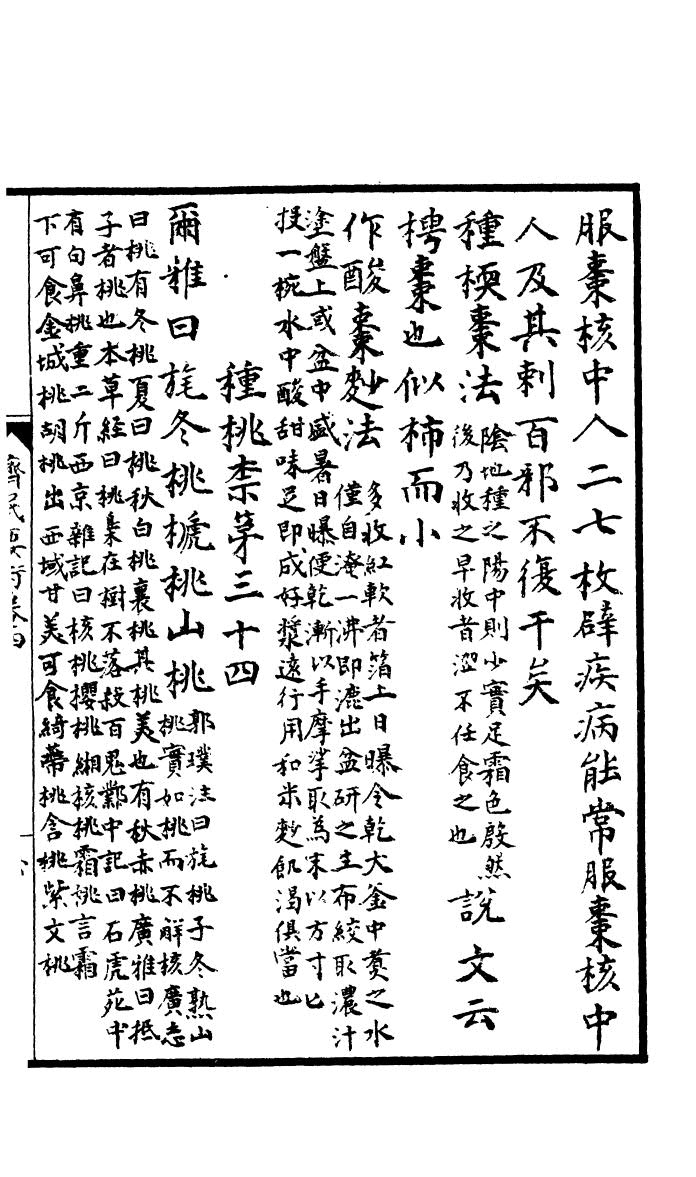 服棗核中人二七枚辟疾病能常服棗核中
人及其刺百邪不復干矣
種楔棗法
陰地種之陽中則少實足霜色殷然
後乃收之早收者澀不任食之也
說文云
樗棗也似柿而小
作酸棗麨法
多收紅軟者箔上日曝令乾大釜中煑之水
僅自淹一沸即漉出盆研之主布絞取濃汁
塗盤上或盆中盛暑日曝使乾漸以手摩挲取為末以方寸匕
投一椀水中酸甜味足即成好漿遠行用和米麨飢渴俱當也
種桃柰第三十四
爾雅曰旄冬桃榹桃山桃
郭璞注曰旄桃子冬熟山
桃實如桃而不解核廣志
曰桃有冬桃夏曰桃秋白桃襄桃其桃美也有秋赤桃廣雅曰抵
子者桃也本草經曰桃梟在樹不落殺百鬼鄴中記曰石虎苑中
有句鼻桃重二斤西京雜記曰核桃櫻桃緗核桃霜桃言霜
下可食金城桃胡桃出西域甘美可食綺蒂桃含桃紫文桃
齊民要術卷四